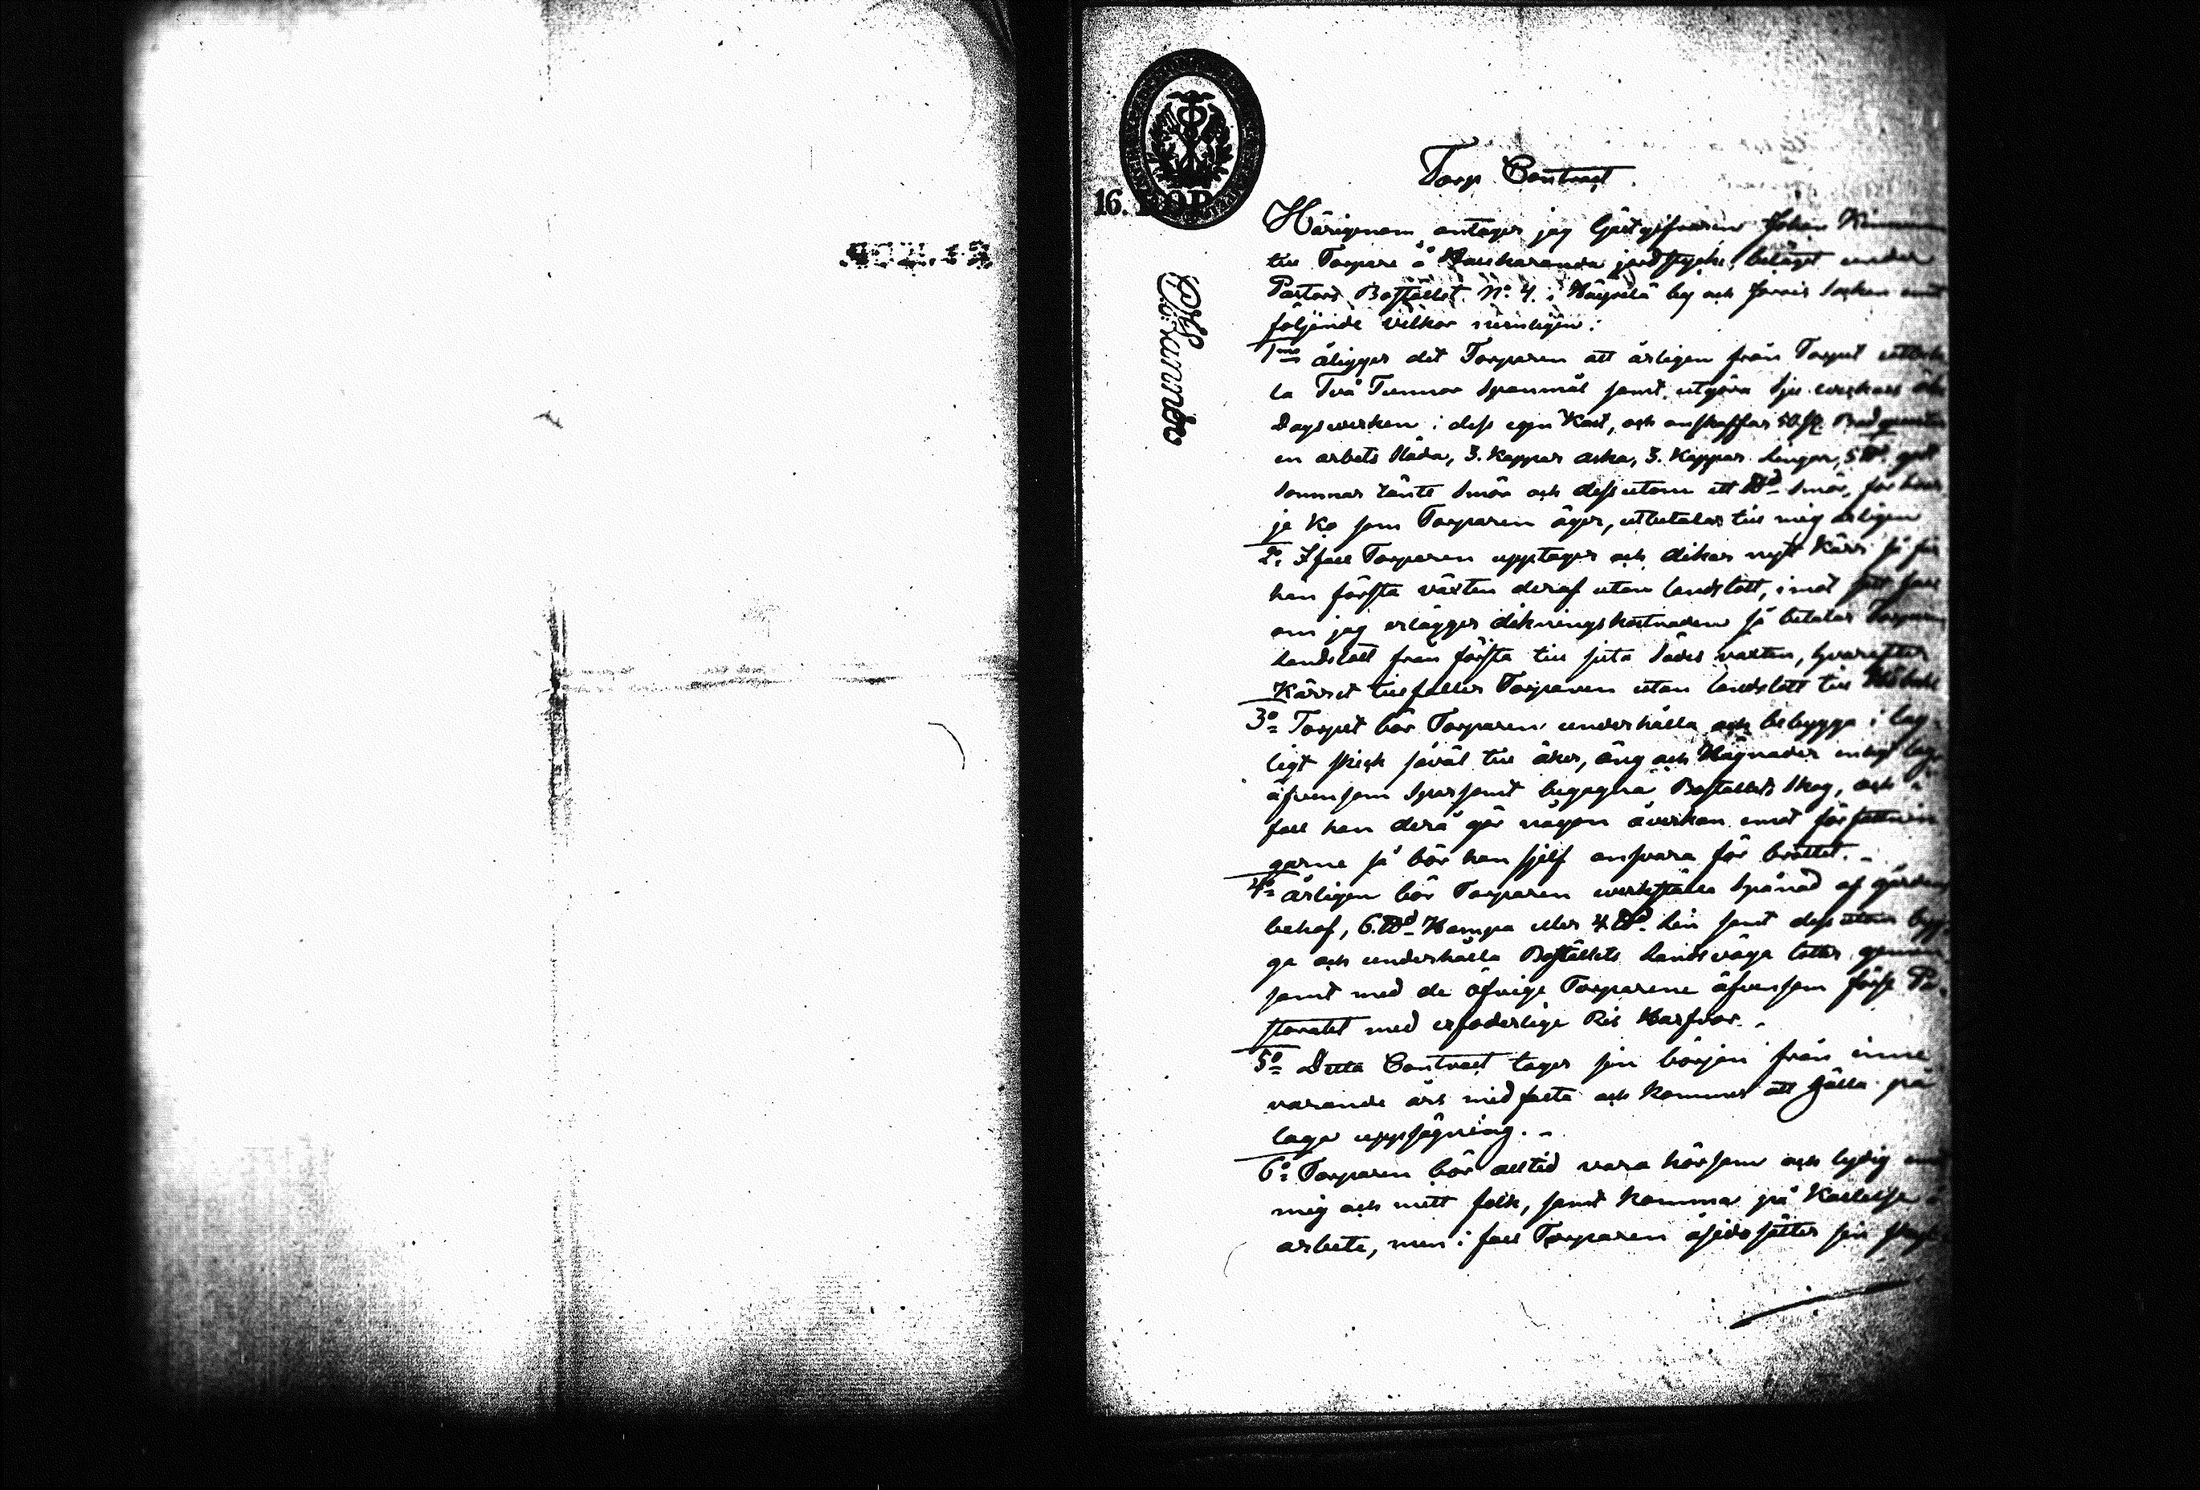 16. KOP.
Torp Contract.
Härigenom antager jag Gästgifvaren Johan
till Torpare å jordstycke, beläget under
Pastors Boställed N:o 4. i by och socken emot
följande vilkor nemligen:
1mo åligger det Torparen att årligen från Torpet
la Två Tunnor Spanmål samt utgöra sju veckors
Dagsverken i dess egen Kost, och anskaffar 50. st.
en arbets 3. Kappar aska, 3. Kappar Lingon, 5
sommar smör och dessutom ett smör, för hvar
je Ko som Torparen äger, utbetalas till mig årligen
2o. Ifall Torparen upptager och dikar nytt Kärr så får
han första växten deraf utan landslott, imot
om jag erlägger dikningskostnaden så betalar Torparen
Landslott från första till sista Sädes växten, hvarefter
Kärret tillfaller Torparen utan landslott till
3o Torpet bör Torparen underhålla och bebygga i lag-
ligt skick såväl till åker, äng och Hägnader enligt lag
äfvensom sparsamt begagna Boställets skog, och i
fall han derå gör någon åverkan emot författnin
garne så bör han sjelf ansvara för brottet. -
4o årligen bör Torparen verkställa Spånad af gårdens
behof, 6. Hampa eller 4. Lin samt dess utom byg-
ga och underhålla Boställets Landsväga lotter gemen
samt med de öfrige Torparene äfvensom förse Pa-
storatet med erfoderlige Ris Harfvor. -
5o Detta Contract tager sin början från inne
varande års midfasta och kommer att gälla på
laga uppsägning. -
6o Torparen bör alltid vara hörsam och lydig emot
mig och mitt folk, samt komma på Kallelse
arbete, men i fall Torparen åsidosätter sin